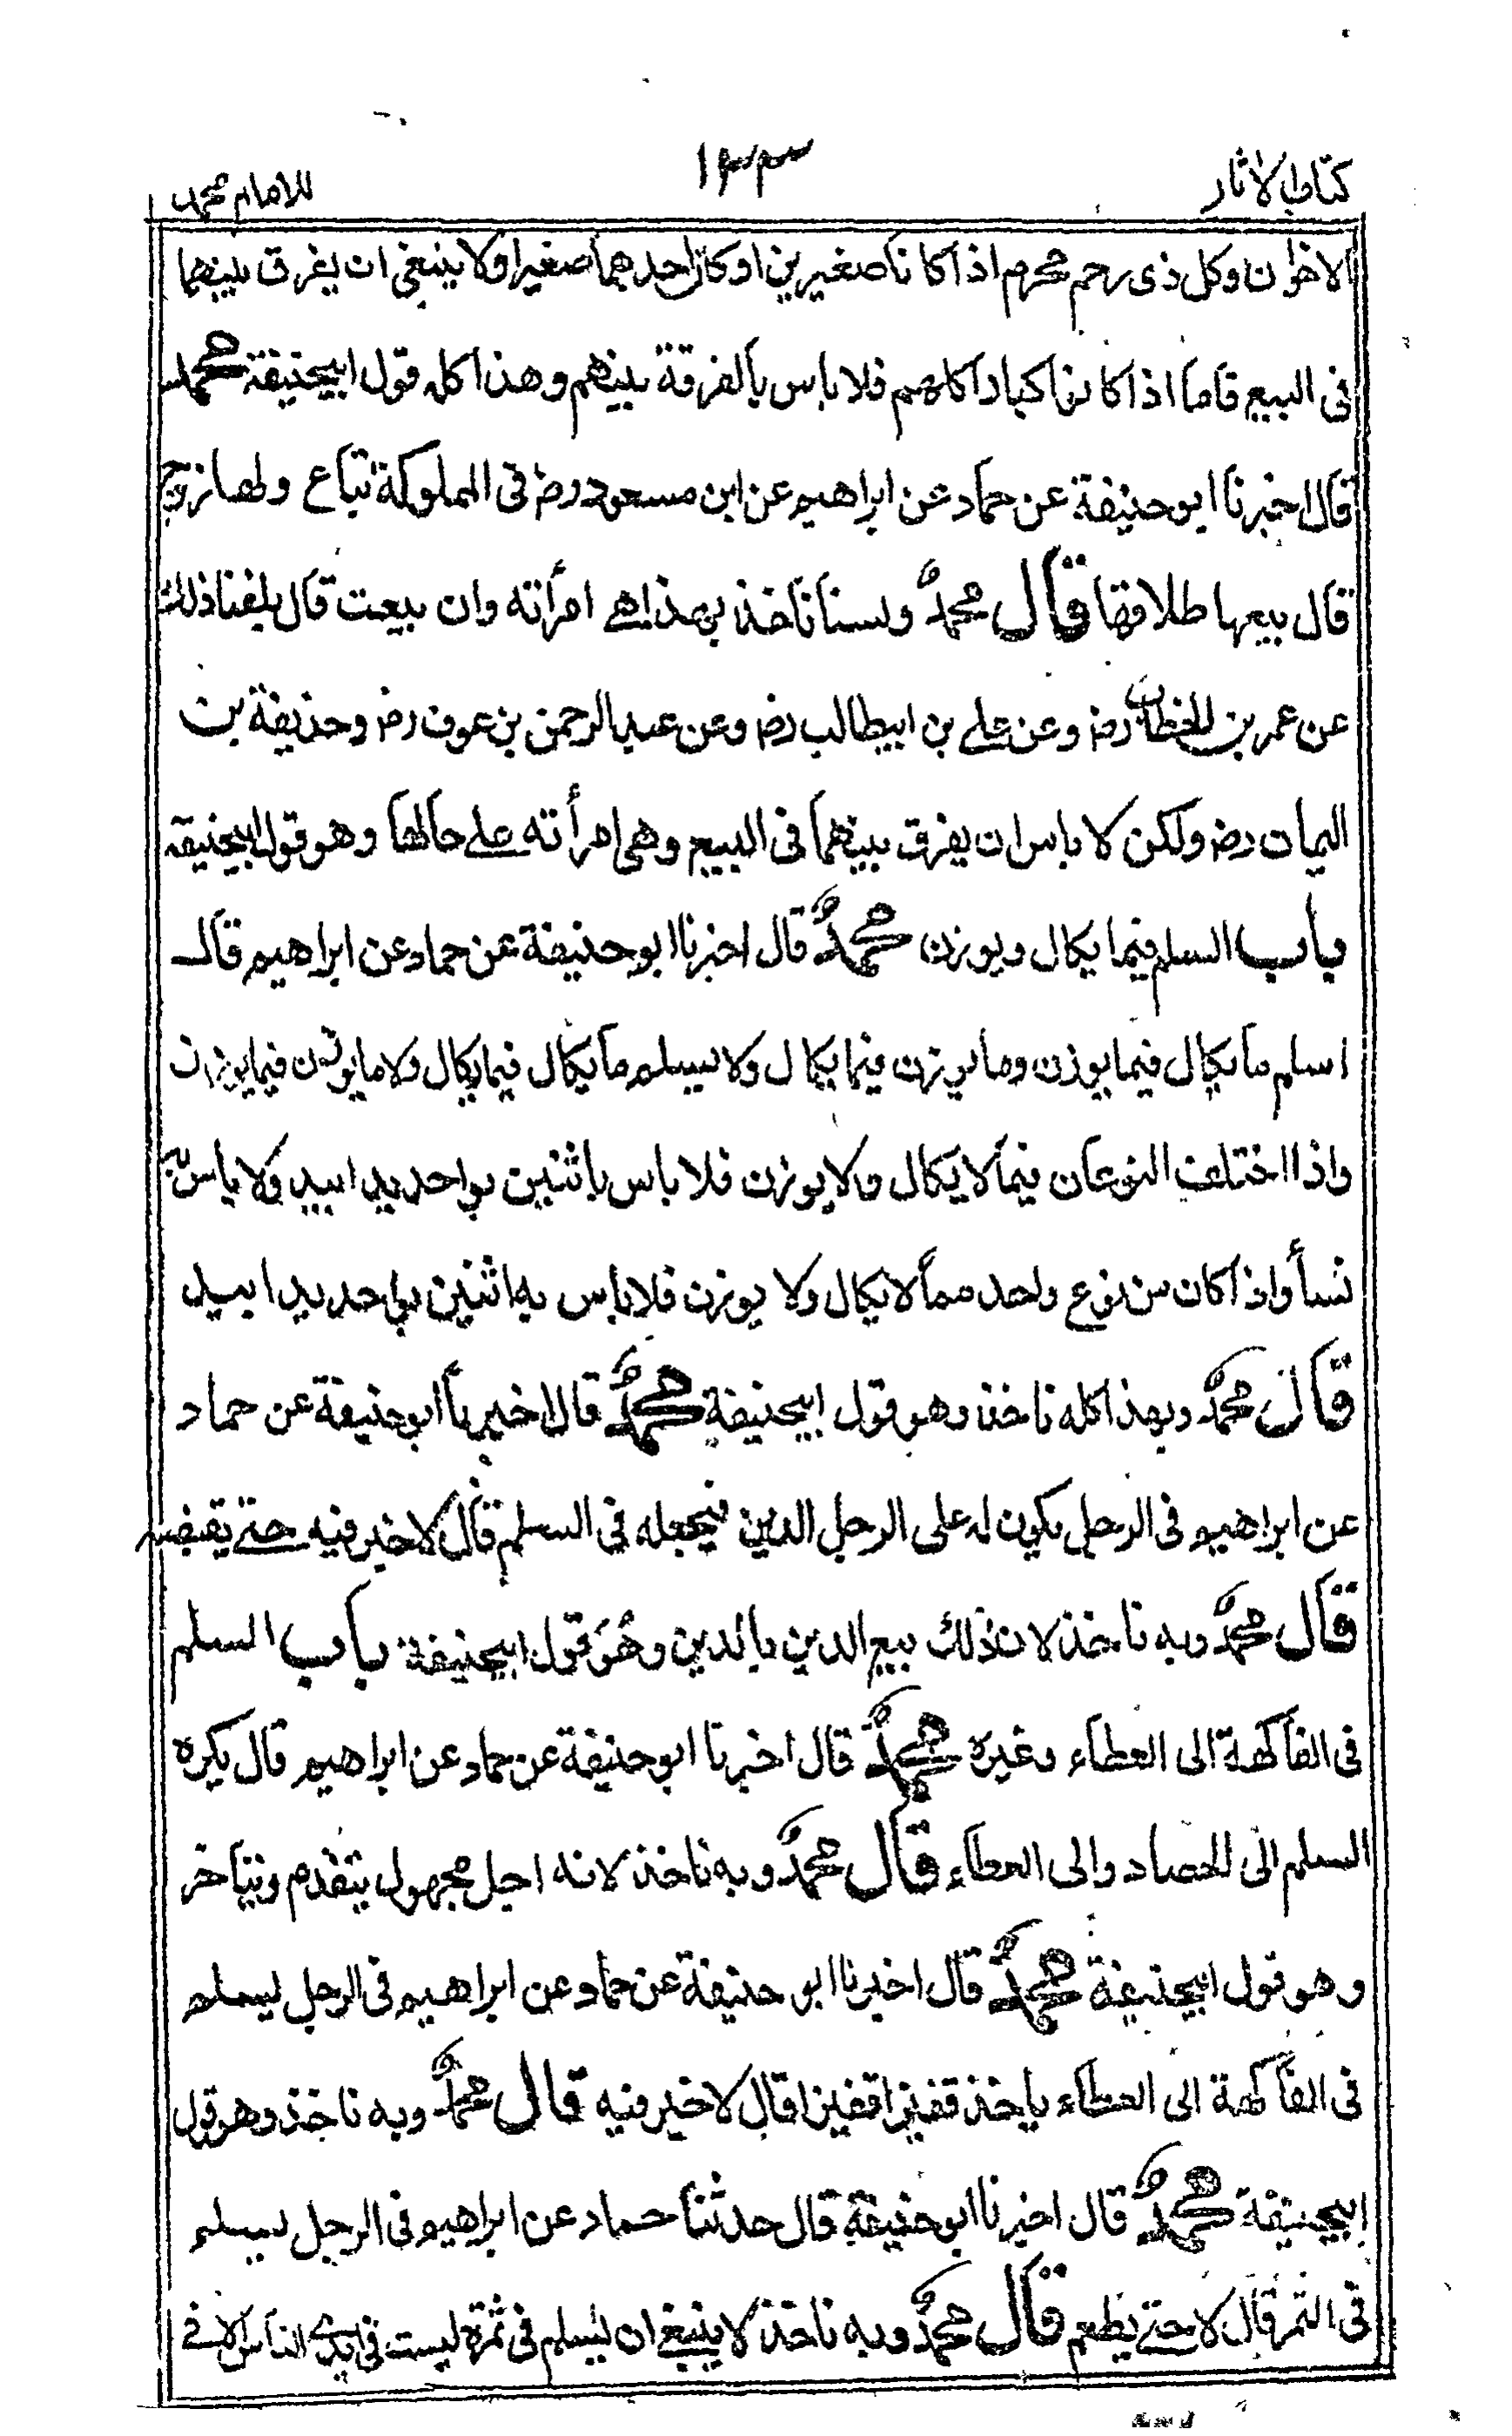 كتاب الاثار
١٣٣
للامام محمد
الاخوان وكل ذى رحم محرم اذا كانا صغيرين او كان احدهما صغيرا ولا ينبغى ان يفرق بينهما
فى البيع فاما اذا كانوا كبارا كلهم فلا باس بالفرقة بينهم وهذا كله قول ابيحنيفة محمد
قال اخبرنا ابو حنيفة عن حماد عن ابراهيم عن ابن مسعود رض فى المملوكة تباع ولها زوج
قال بيعها طلاقها قال محمد ولسنا ناخذ بهذا هے امرأته وان بيعت قال بلغنا ذلك
عن عمر بن الخطاب رض وعن على بن ابيطالب رض وعن عبد الرحمن بن عوف رض وحذيفة بن
اليمان رض ولكن لا باس ان يفرق بينهما فى البيع وهى امرأته على حالها وهو قول ابيحنيفة
باب السلم فيما يكال ويوزن محمد قال اخبرنا ابو حنيفة عن حماد عن ابراهيم قال
اسلم ما يكال فيما يوزن وما يوزن فيما يكال ولا يسلم ما يكال فيما يكال ولا ما يوزن فيما يوزن
واذا اختلف النوعان فيما لا يكال ولا يوزن فلا باس باثنين بواحد يدا بيد ولا باس به
نسأ واذا كان من نوع واحد مما لا يكال ولا يوزن فلا باس به اثنين بواحد يدا بيد
قال محمد وبهذا كله ناخذ وهو قول ابيحنيفة محمد قال اخبرنا ابو حنيفة عن حماد
عن ابراهيم فى الرجل يكون له على الرجل الدين فيجعله فى السلم قال لا خير فيه حتے يقبضه
قال محمد وبه ناخذ لان ذلك بيع الدين بالدين وهو قول ابيحنيفة باب السلم
فى الفاكهة الى العطاء وغيره محمد قال اخبرنا ابو حنيفة عن حماد عن ابراهيم قال يكره
السلم الى الحصاد والى العطاء قال محمد وبه ناخذ لانه اجل مجهول يتقدم ويتاخر
وهو قول ابيحنيفة محمد قال اخبرنا ابو حنيفة عن حماد عن ابراهيم فى الرجل يسلم
فى الفاكهة الى العطاء ياخذ قفيزا قفيزا قال لا خير فيه قال محمد وبه ناخذ وهو قول
ابيحنيفة محمد قال اخبرنا ابو حنيفة قال حدثنا حماد عن ابراهيم فى الرجل يسلم
فى الثمر قال لا حتے يطعم قال محمد وبه ناخذ لا ينبغے ان يسلم فى ثمرة ليست فى ايدے الناس الا فے